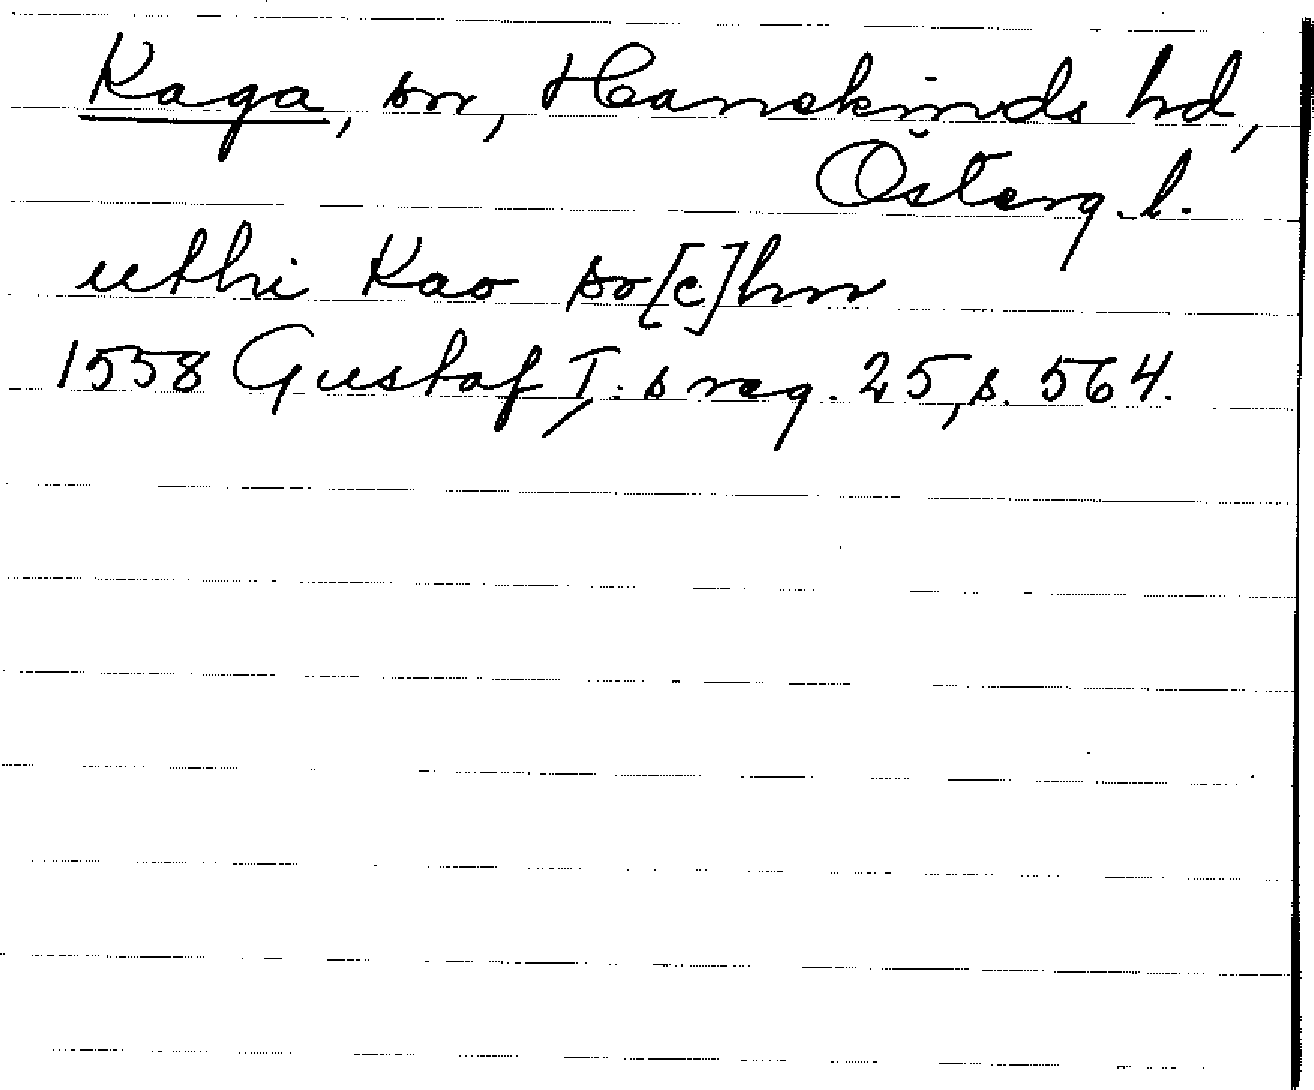 Kaga, sn, Hanekinds hd,
Österg. l.
uthi Kao so[c]hn
1558 Gustaf I:s reg. 25, s. 564.